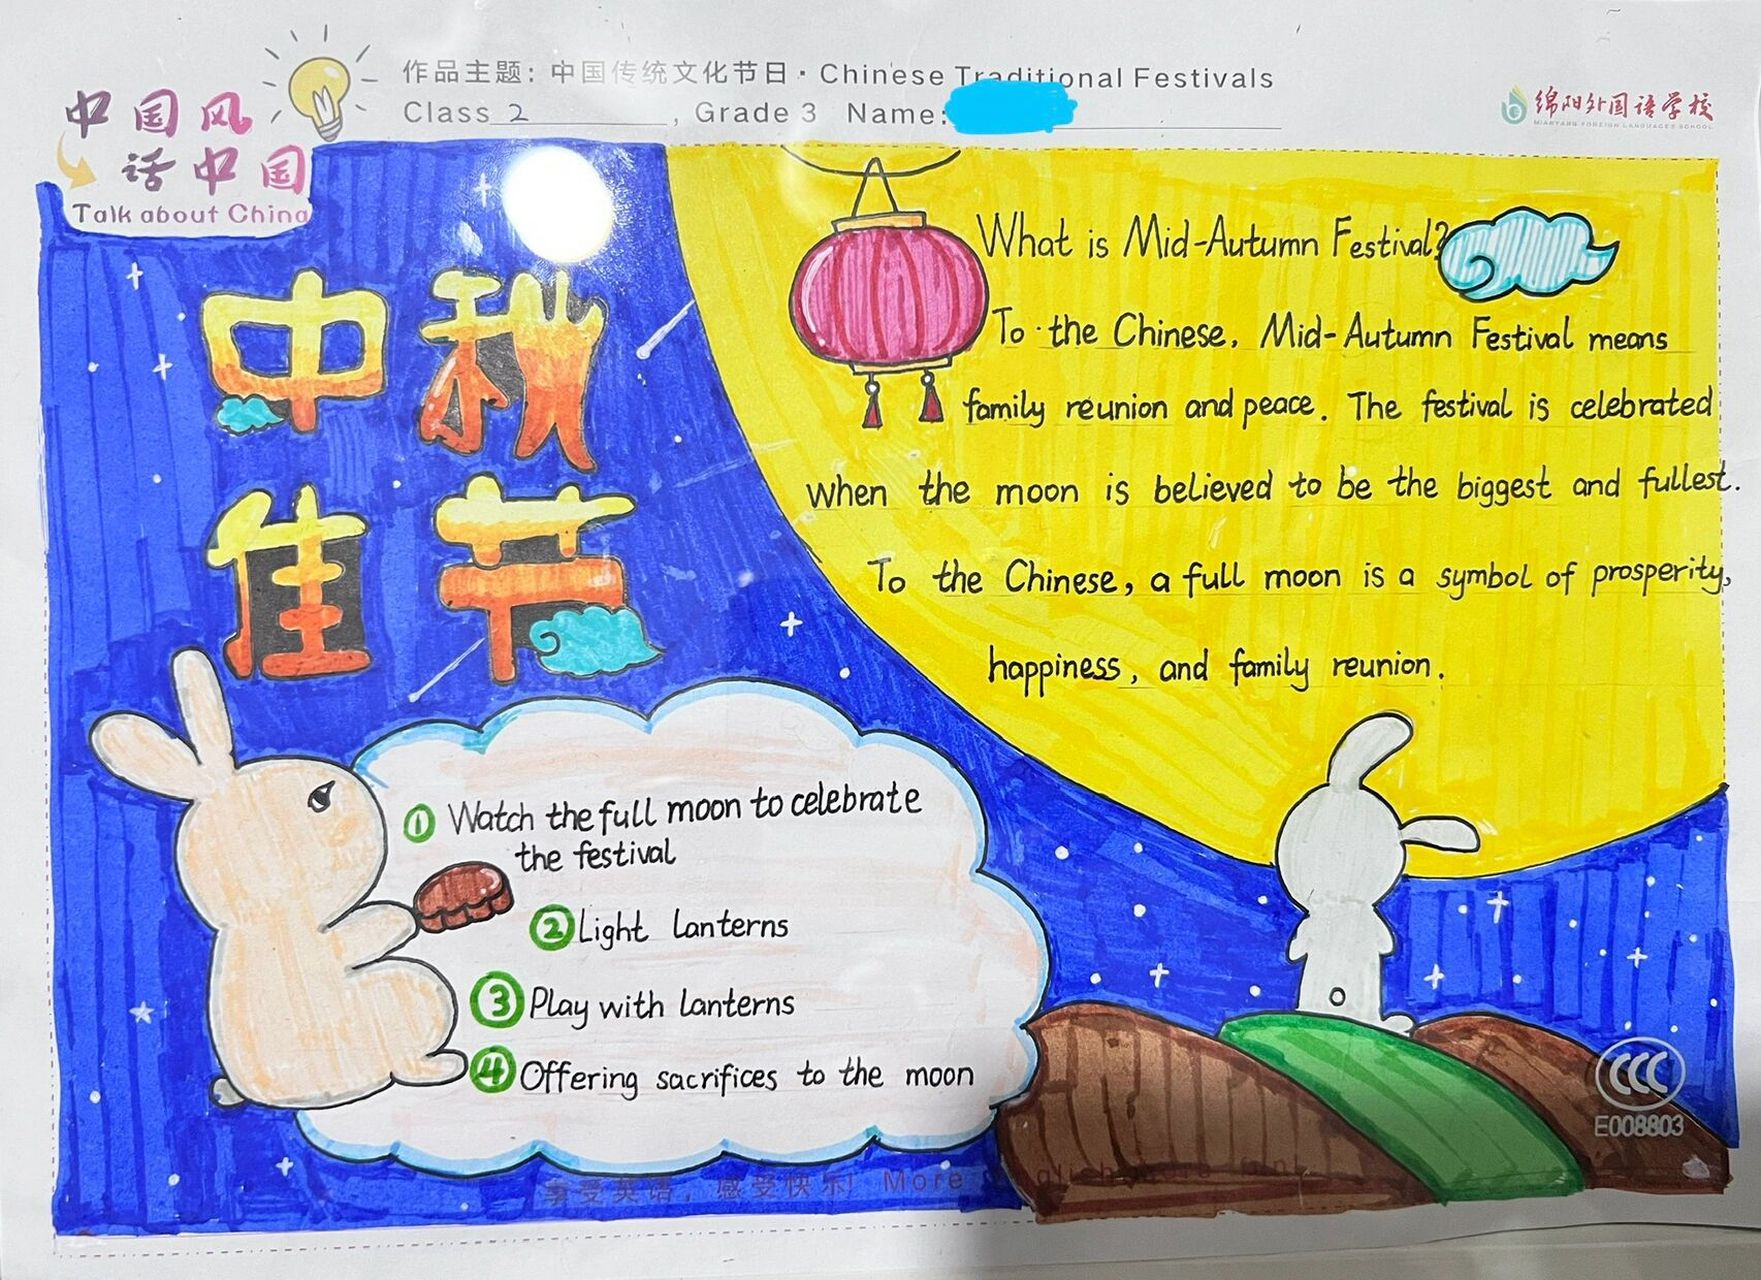 作品主题：中国传统文化节日·Chinese Traditional Festivals
Class 2, Grade 3 Name:
绵阳外国语学校
MIANYANG FOREIGN LANGUAGES SCHOOL
中国风
话中国
Talk about China
中秋
佳节
What is Mid-Autumn Festival?
To the Chinese, Mid-Autumn Festival means
family reunion and peace. The festival is celebrated
when the moon is believed to be the biggest and fullest.
To the Chinese, a full moon is a symbol of prosperity,
happiness, and family reunion.
① Watch the full moon to celebrate
the festival
② Light lanterns
③ Play with lanterns
④ Offering sacrifices to the moon
CCC
E008803
享受英语，感受快乐! More